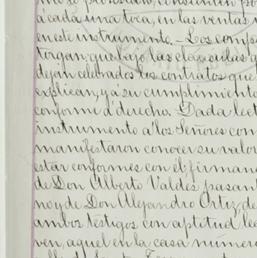 á cada uno toca, en las ventas
en este instrumento.- Los comp
torgan, que bajo las cláusulas q
dejan celebrados los contratos que
explican, y á su cumplimiento
conforme á derecho. Dada lect
instrumento a los Señores con
manifestaron conocer su valor
estar conformes con él firman
de Don Alberto Valdés pasant
no y de Don Alejandro Ortiz, de
ambos testigos con aptitud leg
ven, aquel en la casa número